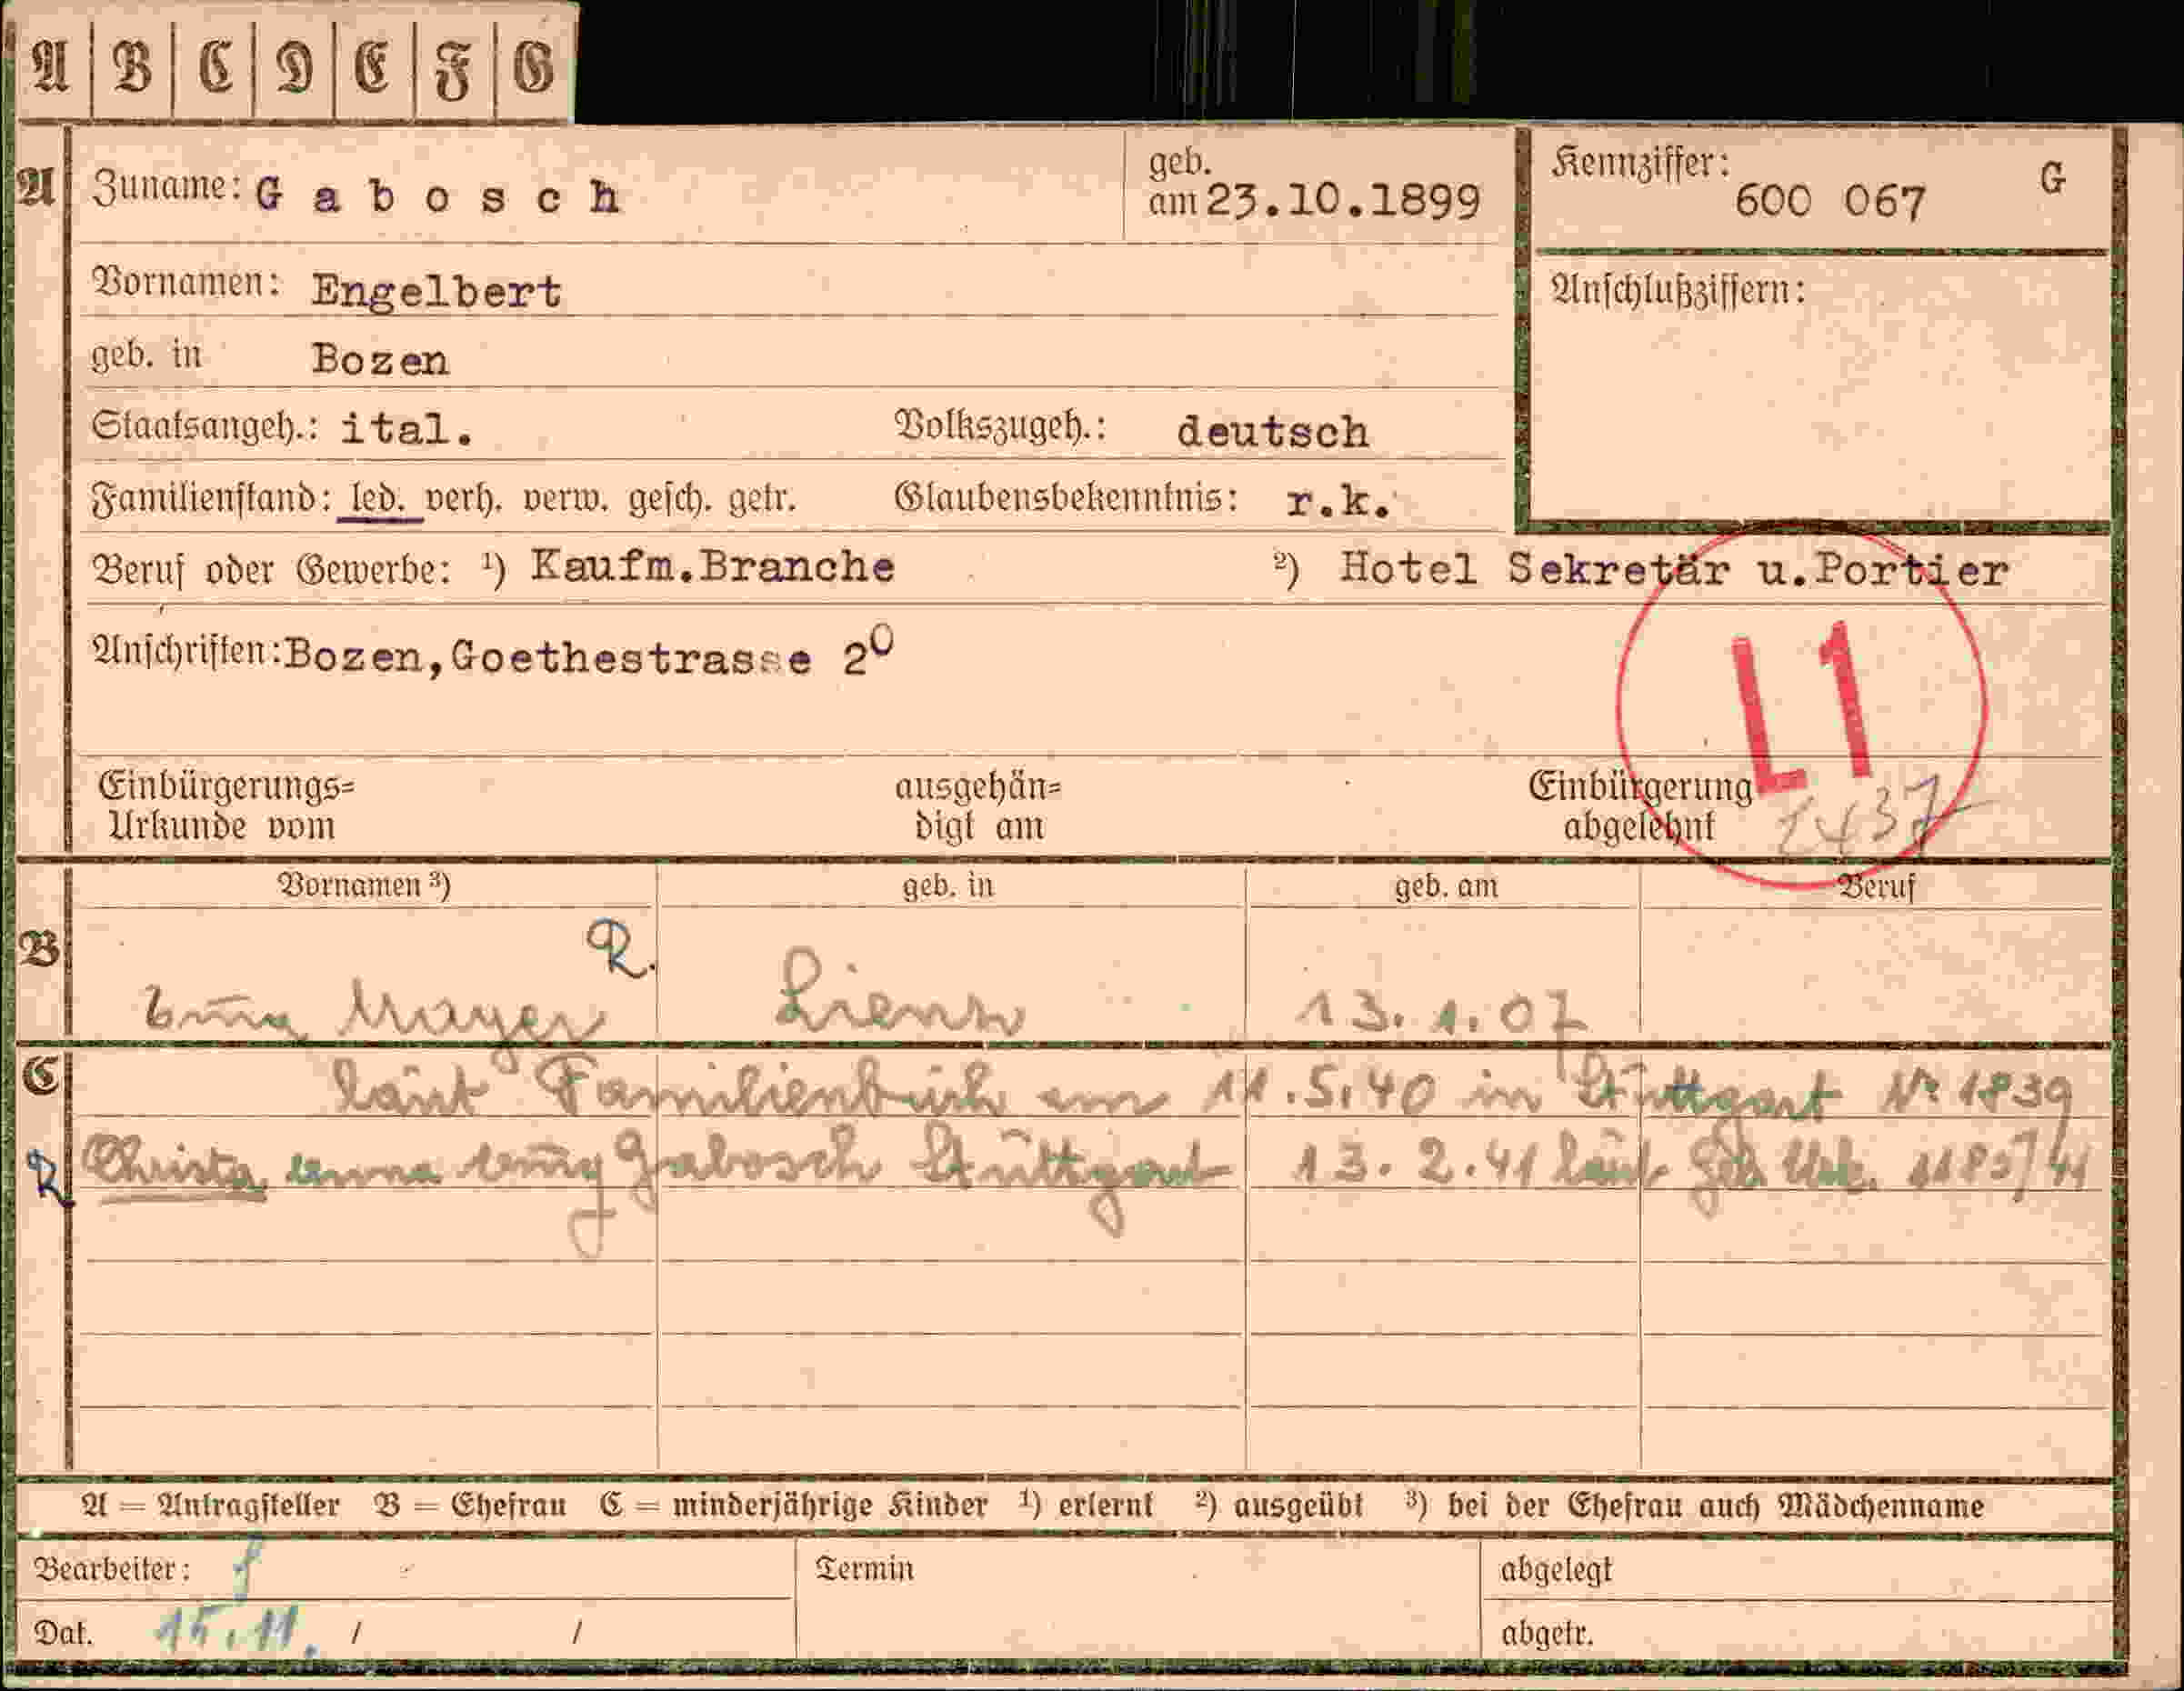 A B C D E F G
A Zuname: Gabosch geb. am 23.10.1899 Kennziffer: 600 067 G
Vornamen: Engelbert Anschlußziffern:
geb. in Bozen
Staatsangeh.: ital. Volkszugeh.: deutsch
Familienstand: led. verh. verw. gesch. getr. Glaubensbekenntnis: r.k.
Beruf oder Gewerbe: ¹) Kaufm.Branche ²) Hotel Sekretär u.Portier
Anschriften: Bozen,Goethestrasse 20
L1
Einbürgerungs= ausgehän= Einbürgerung
Urkunde vom digt am abgelehnt 1437
Vornamen ³) geb. in geb. am Beruf
B R.
Mayer Lienz 13.1.07
C laut Familienbuch am 11.5.40 in Stuttgart Nr 1839
R Christa Anna Gabosch Stuttgart 13.2.41 laut Geb Urk. 1185/41
A = Antragsteller B = Ehefrau C = minderjährige Kinder ¹) erlernt ²) ausgeübt ³) bei der Ehefrau auch Mädchenname
Bearbeiter: Termin abgelegt
Dat. 15.11. / / abgetr.